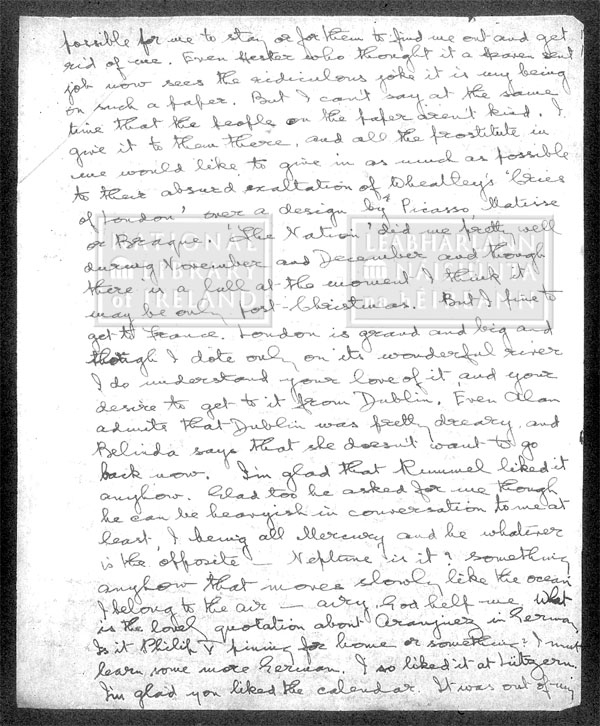 possible for me to stay or for them to find me out and get
rid of me. Even Hester who thought it a heaven sent
job now sees the ridiculous joke it is my being
on such a paper. But I can't say at the same
time that the people on the paper aren't kind. I
give it to them there, and all the prostitute in
me would like to give in as much as possible
to their absurd exaltation of Wheatley's 'Cries
of London' over a design by Picasso Matisse
or Braque. 'The Nation' did me pretty well
during November and December and though
there is a lull at the moment I think it
may be only post-Christmas. But I pine to
get to France. London is grand and big and
though I dote only on its wonderful river
I do understand your love of it, and your
desire to get to it from Dublin. Even Alan
admits that Dublin was pretty dreary, and
Belinda says that she doesn't want to go
back now. I'm glad that Rummel liked it
anyhow. Glad too he asked for me though
he can be heavyish in conversation to me at
least, I being all Mercury and he whatever
is the opposite – Neptune is it? something
anyhow that moves slowly like the ocean
I belong to the air – airy, God help me. What
is the lovely quotation about Aranjuez in German,
Is it Philip V pining for home or something? I must
learn some more German. I so liked it at
I'm glad you liked the calendar. It was out of my
NATIONAL
LIBRARY
of IRELAND
LEABHARLANN
NÁISIÚNTA
na hÉIREANN